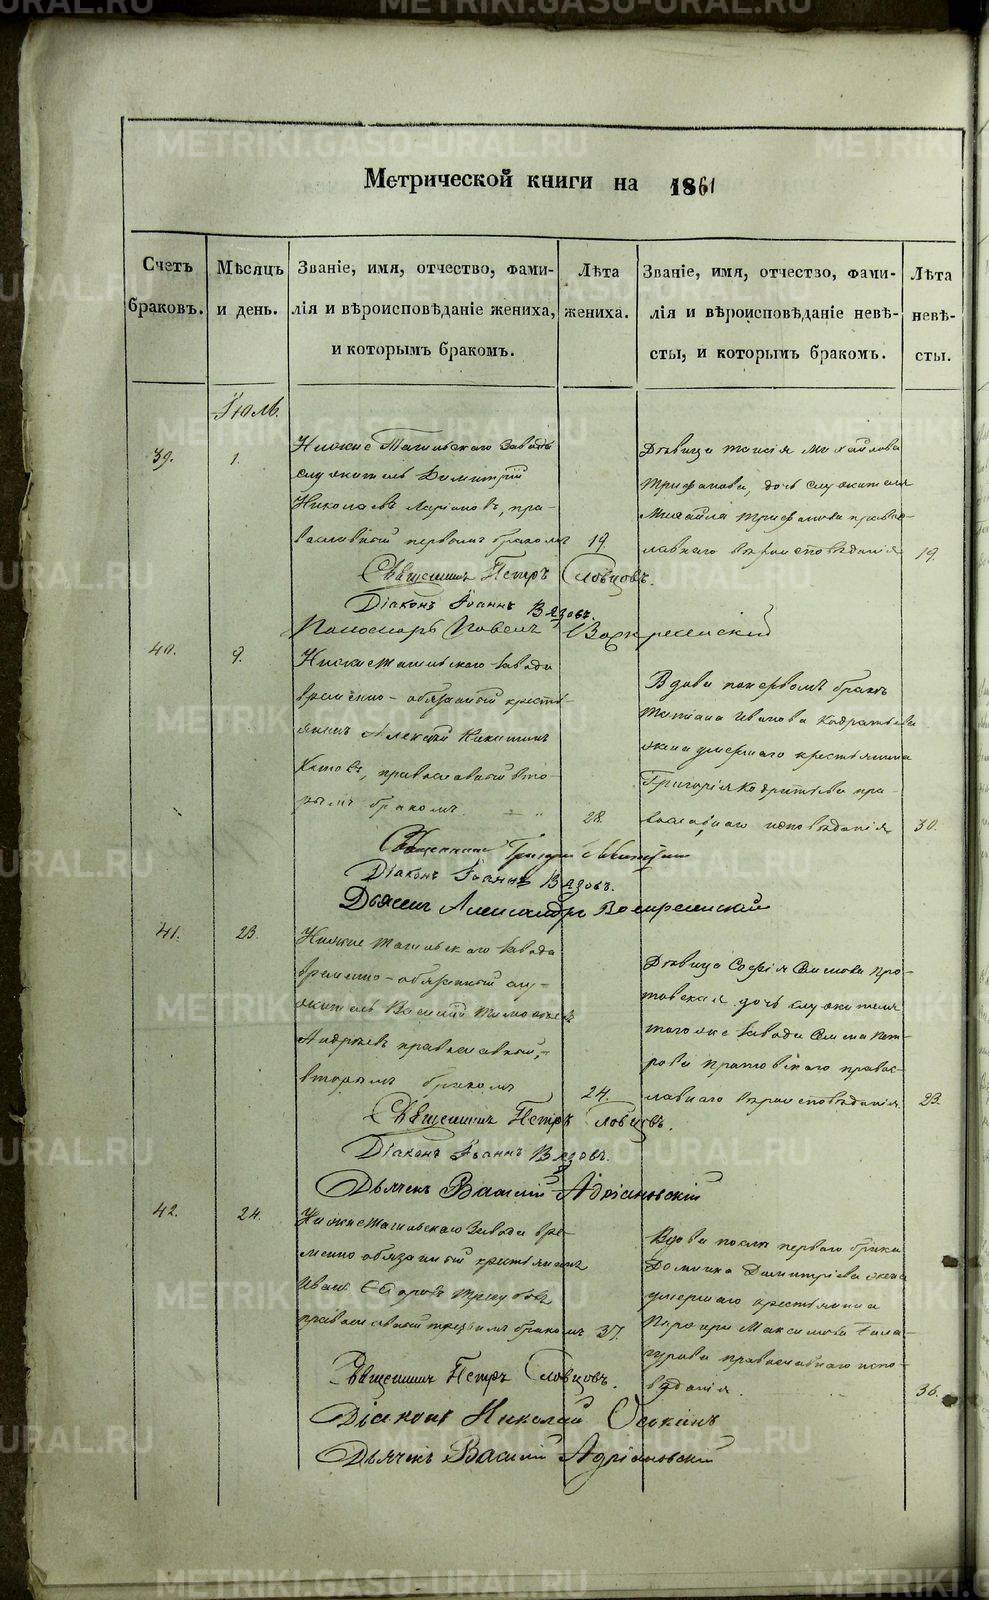 Метрической книги на 1861
Счетъ браковъ.
Мѣсяцъ и день.
Званіе, имя, отчество, фами-
лія и вѣроисповѣданіе жениха,
и которымъ бракомъ.
Лѣта жениха.
Званіе, имя, отчество, фами-
лія и вѣроисповѣданіе невѣ-
сты, и которымъ бракомъ.
Лѣта невѣ-
сты.
Іюль.
39.
1.
Нижне Тагильскаго Завода
служитель Димитрій
Николаевъ Ларіоновъ, пра-
вославный первымъ бракомъ
19.
Дѣвица Таисія Михайлова
Трифанова, дочь служителя
Михаила Трифанова правос-
лавнаго вѣроисповѣданія
19.
Священникъ Петръ Словцовъ.
Діаконъ Іоаннъ Вязовъ.
Пономарь Павелъ Воскресенскій
40.
9.
Нижнетагильскаго завода
временно-обязанный кресть-
янинъ Алексѣй Никитинъ
православный вто-
рымъ бракомъ
28.
Вдова по первомъ бракѣ
Татіана Иванова Кодратьева
жена умершаго крестьянина
Григорія Кодратьева пра-
вославнаго исповѣданія
30.
Священникъ Григорій
Діаконъ Іоаннъ Вязовъ.
Дьячекъ Александръ Воскресенскій
41.
23.
Нижнетагильскаго завода
временно-обязанный слу-
житель Василій Тимофѣевъ
Андреевъ православный,
вторымъ бракомъ
24.
Дѣвица Софія Симова Про-
товская дочь служителя
тогоже завода Сима Пет-
рова Протовскаго правос-
лавнаго вѣроисповѣданія
23.
Священникъ Петръ Словцовъ.
Діаконъ Іоаннъ Вязовъ.
Дьячекъ Василій Адріановскій
42.
24.
Нижнетагильскаго Завода вре-
менно обязанный крестьянинъ
Иванъ Ѳедоровъ Трегубовъ
православный третьимъ бракомъ
37.
Вдова послѣ перваго брака
Домника Димитріева жена
умершаго крестьянина
Максимова Бала-
гурова православнаго испо-
вѣданія.
36.
Священникъ Петръ Словцовъ.
Діаконъ Николай Оськинъ
Дьячекъ Василій Адріановскій
METRIKI.GASO-URAL.RU